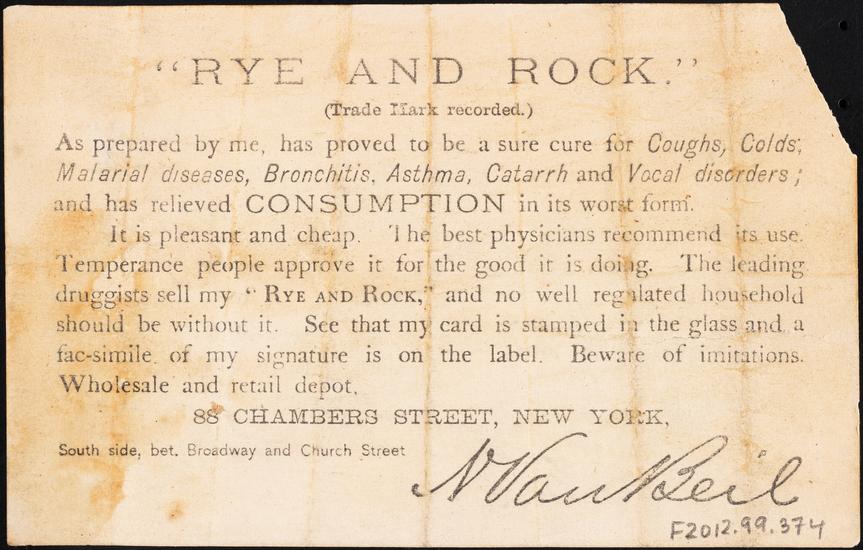 "RYE AND ROCK."
(Trade Mark recorded.)
As prepared by me, has proved to be a sure cure for Coughs, Colds,
Malarial diseases, Bronchitis, Asthma, Catarrh and Vocal disorders;
and has relieved CONSUMPTION in its worst form.
It is pleasant and cheap. The best physicians recommend its use.
Temperance people approve it for the good it is doing. The leading
druggists sell my "RYE AND ROCK," and no well regulated household
should be without it. See that my card is stamped in the glass and a
fac-simile of my signature is on the label. Beware of imitations.
Wholesale and retail depot,
88 CHAMBERS STREET, NEW YORK,
South side, bet. Broadway and Church Street
N Van Beil
F2012.99.374